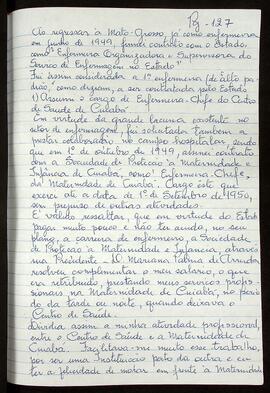 Pg - 127
Ao regressar a Mato-Grosso, já como enfermeira
em junho de 1949, firmei contrato com o Estado,
como "Enfermeira Organizadora e Supervisora do
Serviço de Enfermagem no Estado"
Fui assim considerada a 1ª enfermeira (de alto pa-
drão, como diziam, a ser contratada pelo Estado
1) Assumi o cargo de Enfermeira-Chefe do Centro
de Saúde de Cuiabá
Em virtude da grande lacuna existente no
setor de enfermagem, fui solicitada também a
prestar colaboração no campo hospitalar, sendo
que em 1º de outubro de 1949, assinei contrato
com a Sociedade de Proteção à Maternidade e
Infância de Cuiabá, como Enfermeira-Chefe,
da Maternidade de Cuiabá. Cargo este que
exerci até a data de 1º de Setembro de 1950,
sem prejuízo de outras atividades.
É válido ressaltar, que em virtude do Estado
pagar muito pouco e não ter ainda, no seu
plano, a carreira de enfermeira, a Sociedade
de Proteção à Maternidade e Infância, através
sua Presidente - D. Mariana Palma de Arruda
resolveu complementar o meu salário, o que
era retribuído, prestando meus serviços profis-
sionais na Maternidade de Cuiabá, no perío-
do da tarde ou noite, quando deixava o
Centro de Saúde.
Dividia assim a minha atividade profissional,
entre o Centro de Saúde e a Maternidade de
Cuiabá. Facilitava-me muito esse trabalho,
por ser uma Instituição perto da outra e eu
ter a felicidade de morar em frente à Maternidade